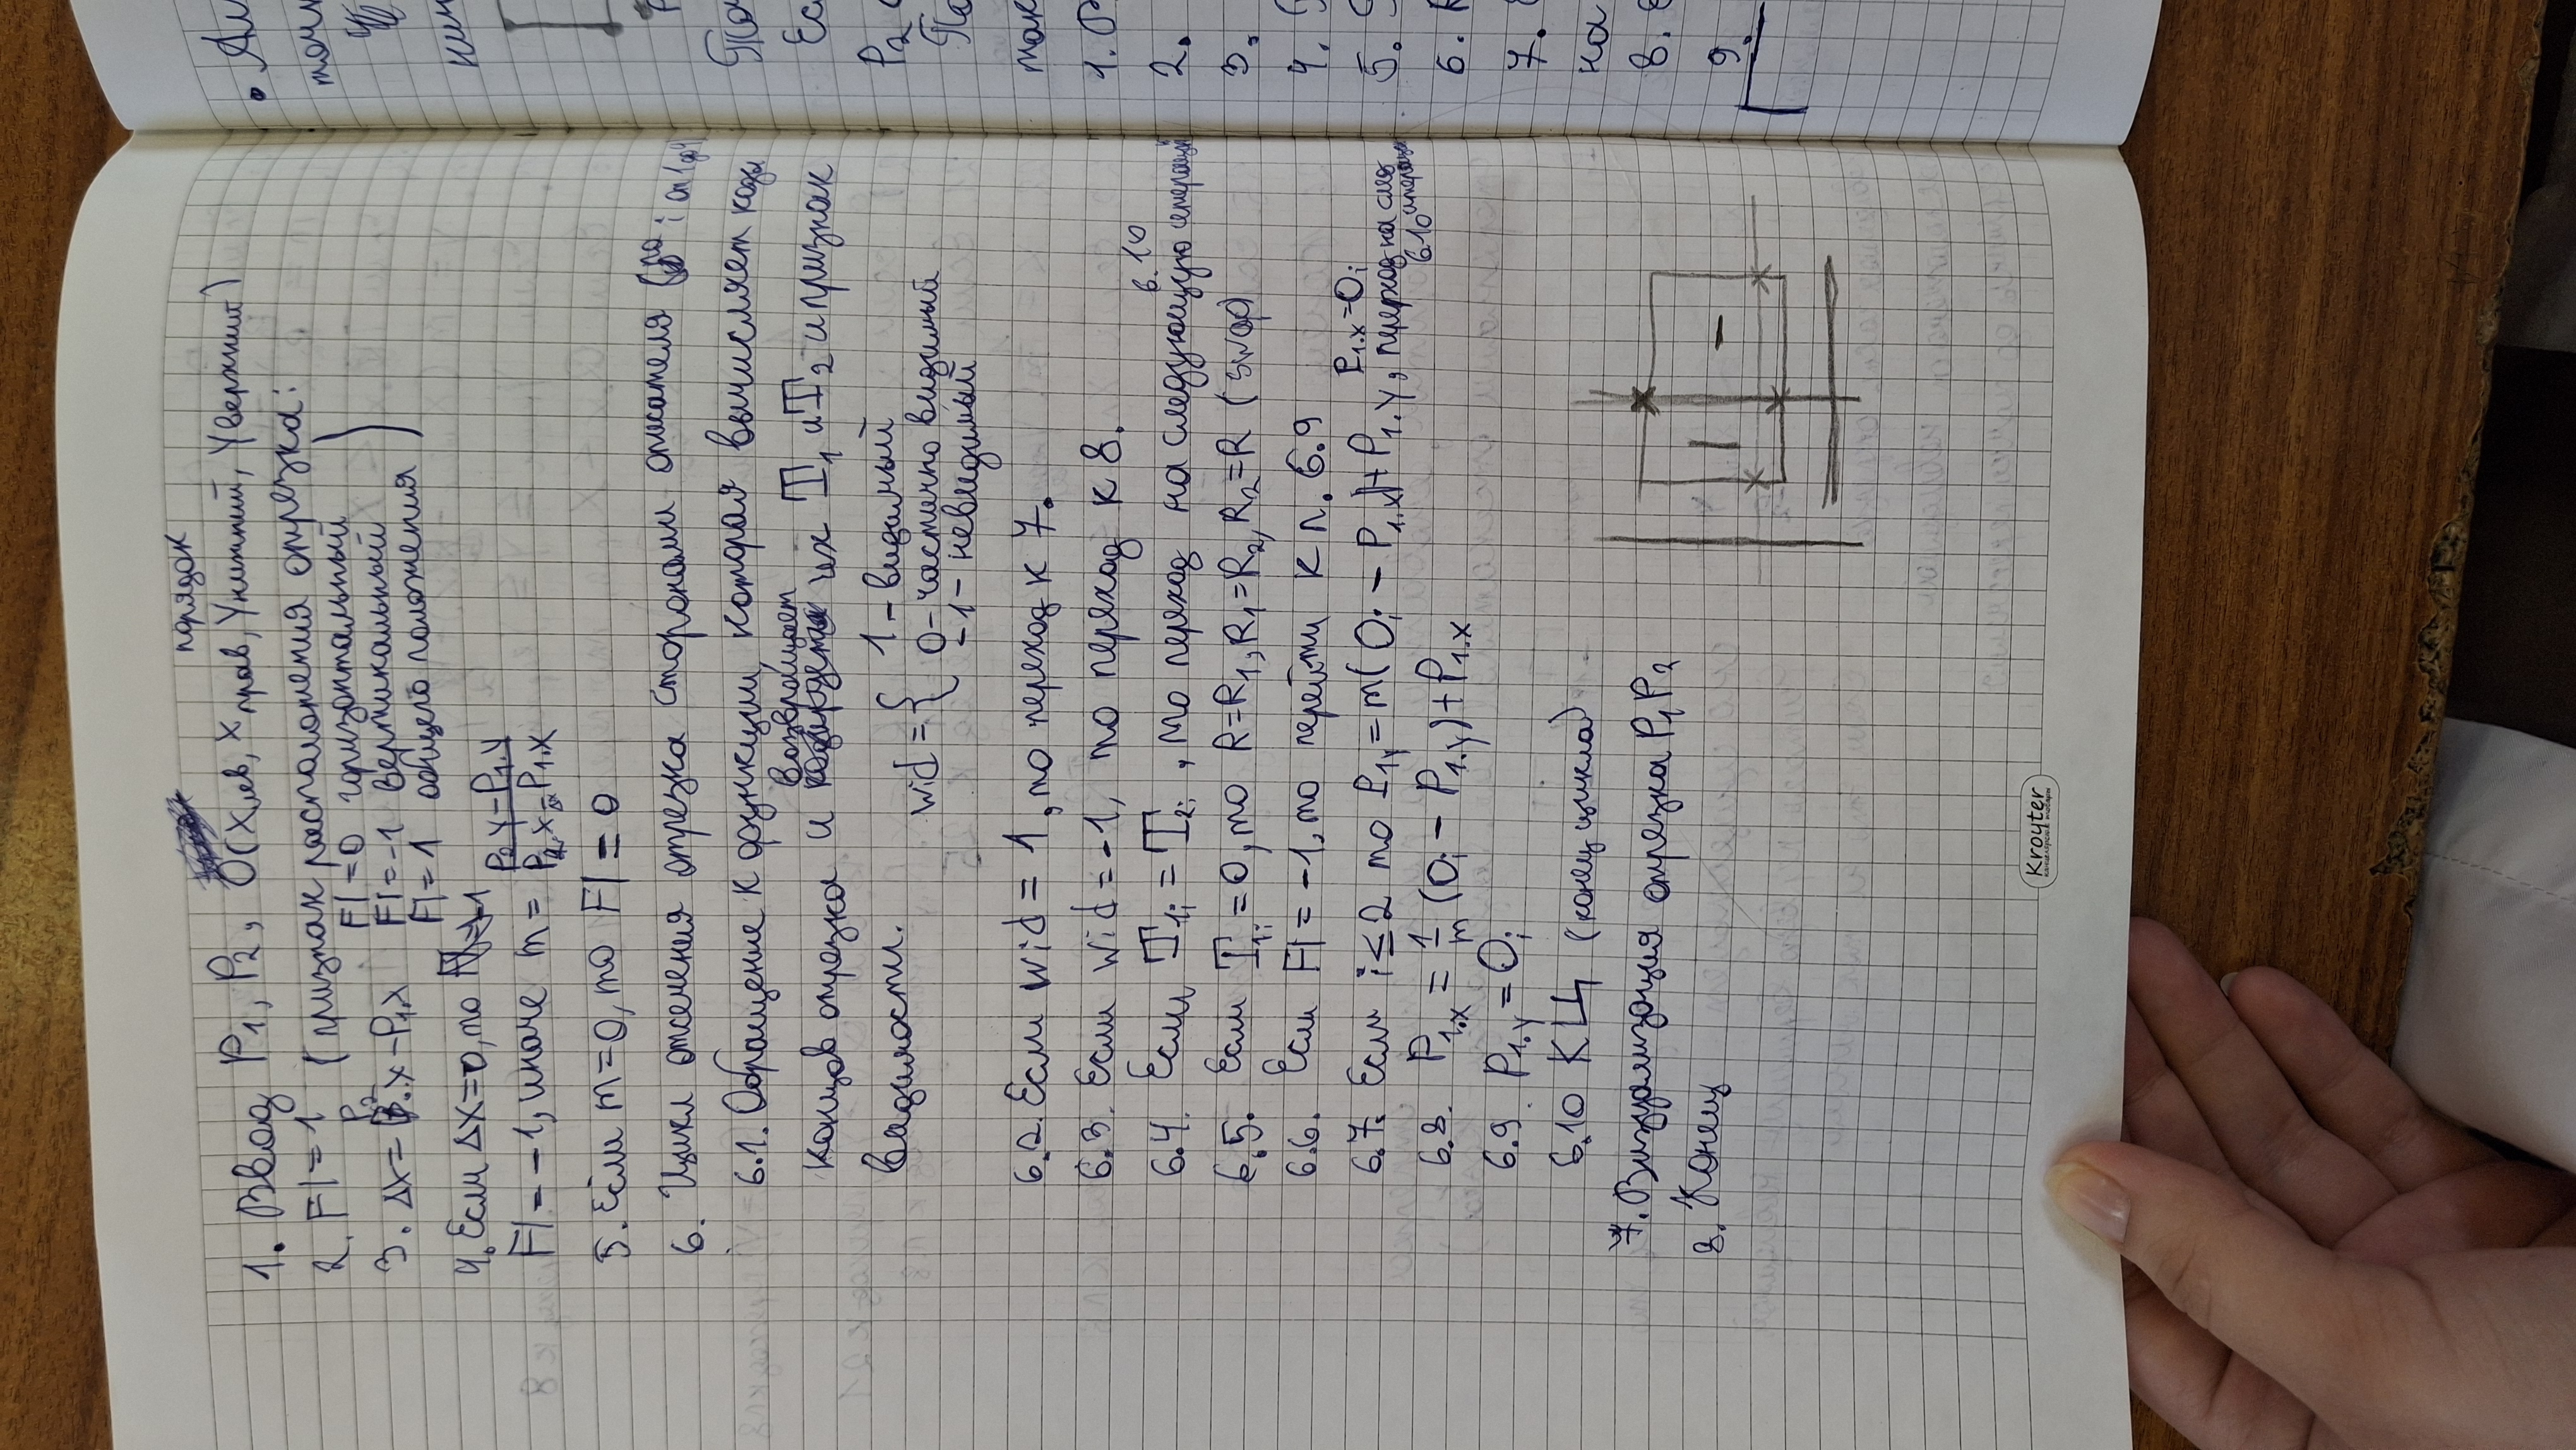 порядок
1. Ввод P1, P2, O(Xлев, Xправ, Yнижний, Yверхний)
2. Fl = 1 (признак расположения отрезка:
Fl = 0 горизонтальный
3. Δx = P2.x - P1.x Fl = -1 вертикальный
Fl = 1 общего положения)
4. Если Δx = 0, то
Fl = -1, иначе m = P2.y - P1.y / P2.x - P1.x
5. Если m = 0, то Fl = 0
6. Цикл отсечения отрезка сторонами отсекателя (по i от 1 до 4)
6.1. Обращение к функции, которая вычисляет коды
концов отрезка и возвращает их T1 и T2 и признак
видимости.
wid = { 1 - видимый
0 - частично видимый
-1 - невидимый
6.2. Если wid = 1, то переход к 7.
6.3. Если wid = -1, то переход к 8.
6.4. Если T1i = T2i, то переход на следующую итерацию 6.10
6.5. Если T1i = 0, то R=R1, R1=R2, R2=R (swap)
6.6. Если Fl = -1, то перейти к п. 6.9
6.7. Если i ≤ 2 то P1y = m(Oi - P1.x) + P1.y, P1.x = Oi переход на след итерацию 6.10
6.8. P1.x = 1/m (Oi - P1.y) + P1.x
6.9. P1.y = Oi
6.10 КЦ (конец цикла)
7. Визуализация отрезка P1 P2
8. Конец
Krouter
канцелярские товары
• Ал
точ
нин
То
Ес
P2
По
так
1. В
2.
3.
4.
5.
6.
7.
на
8.
9.